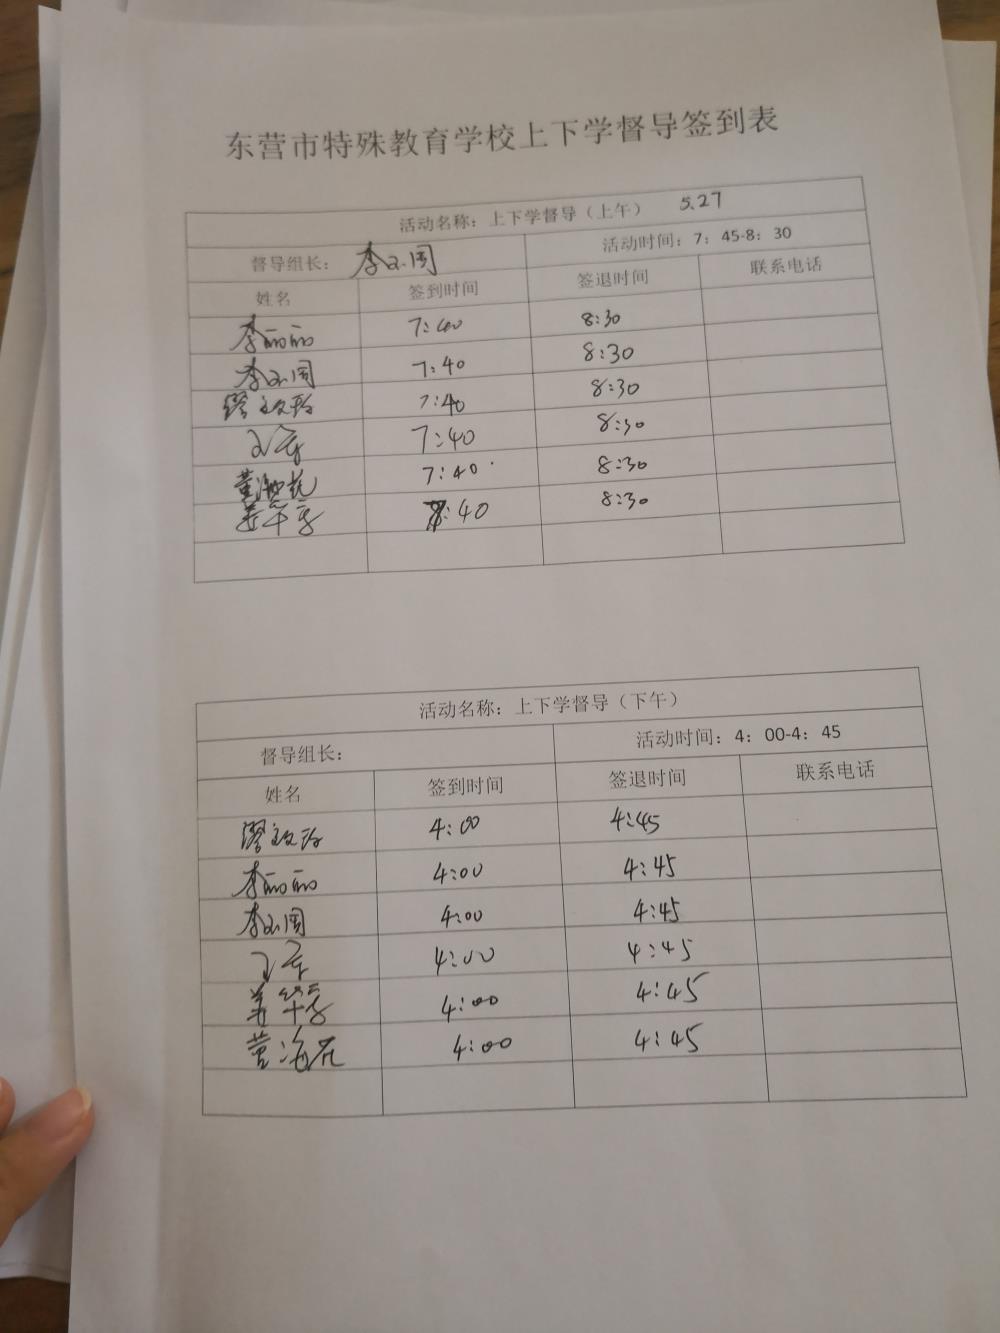 东营市特殊教育学校上下学督导签到表
活动名称：上下学督导（上午） 5.27
督导组长： 李玉周 活动时间：7：45-8：30
姓名 签到时间 签退时间 联系电话
李丽丽 7:40 8:30
李玉周 7:40 8:30
7:40 8:30
7:40 8:30
7:40 8:30
7:40 8:30
活动名称：上下学督导（下午）
督导组长： 活动时间：4：00-4：45
姓名 签到时间 签退时间 联系电话
4:00 4:45
李丽丽 4:00 4:45
李玉周 4:00 4:45
4:00 4:45
4:00 4:45
4:00 4:45